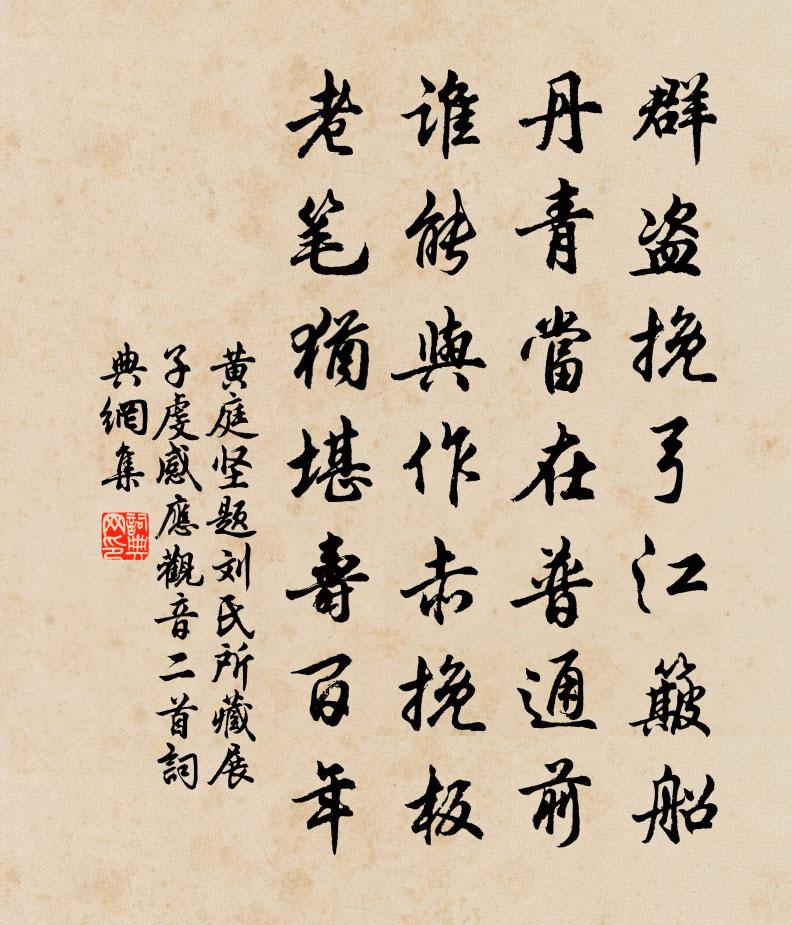 群盗挽弓江簸船
丹青當在普通前
誰能與作赤挽板
老笔猶堪壽百年
黄庭坚题刘氏所藏展
子虔感應觀音二首詞
典網集
詞典网印